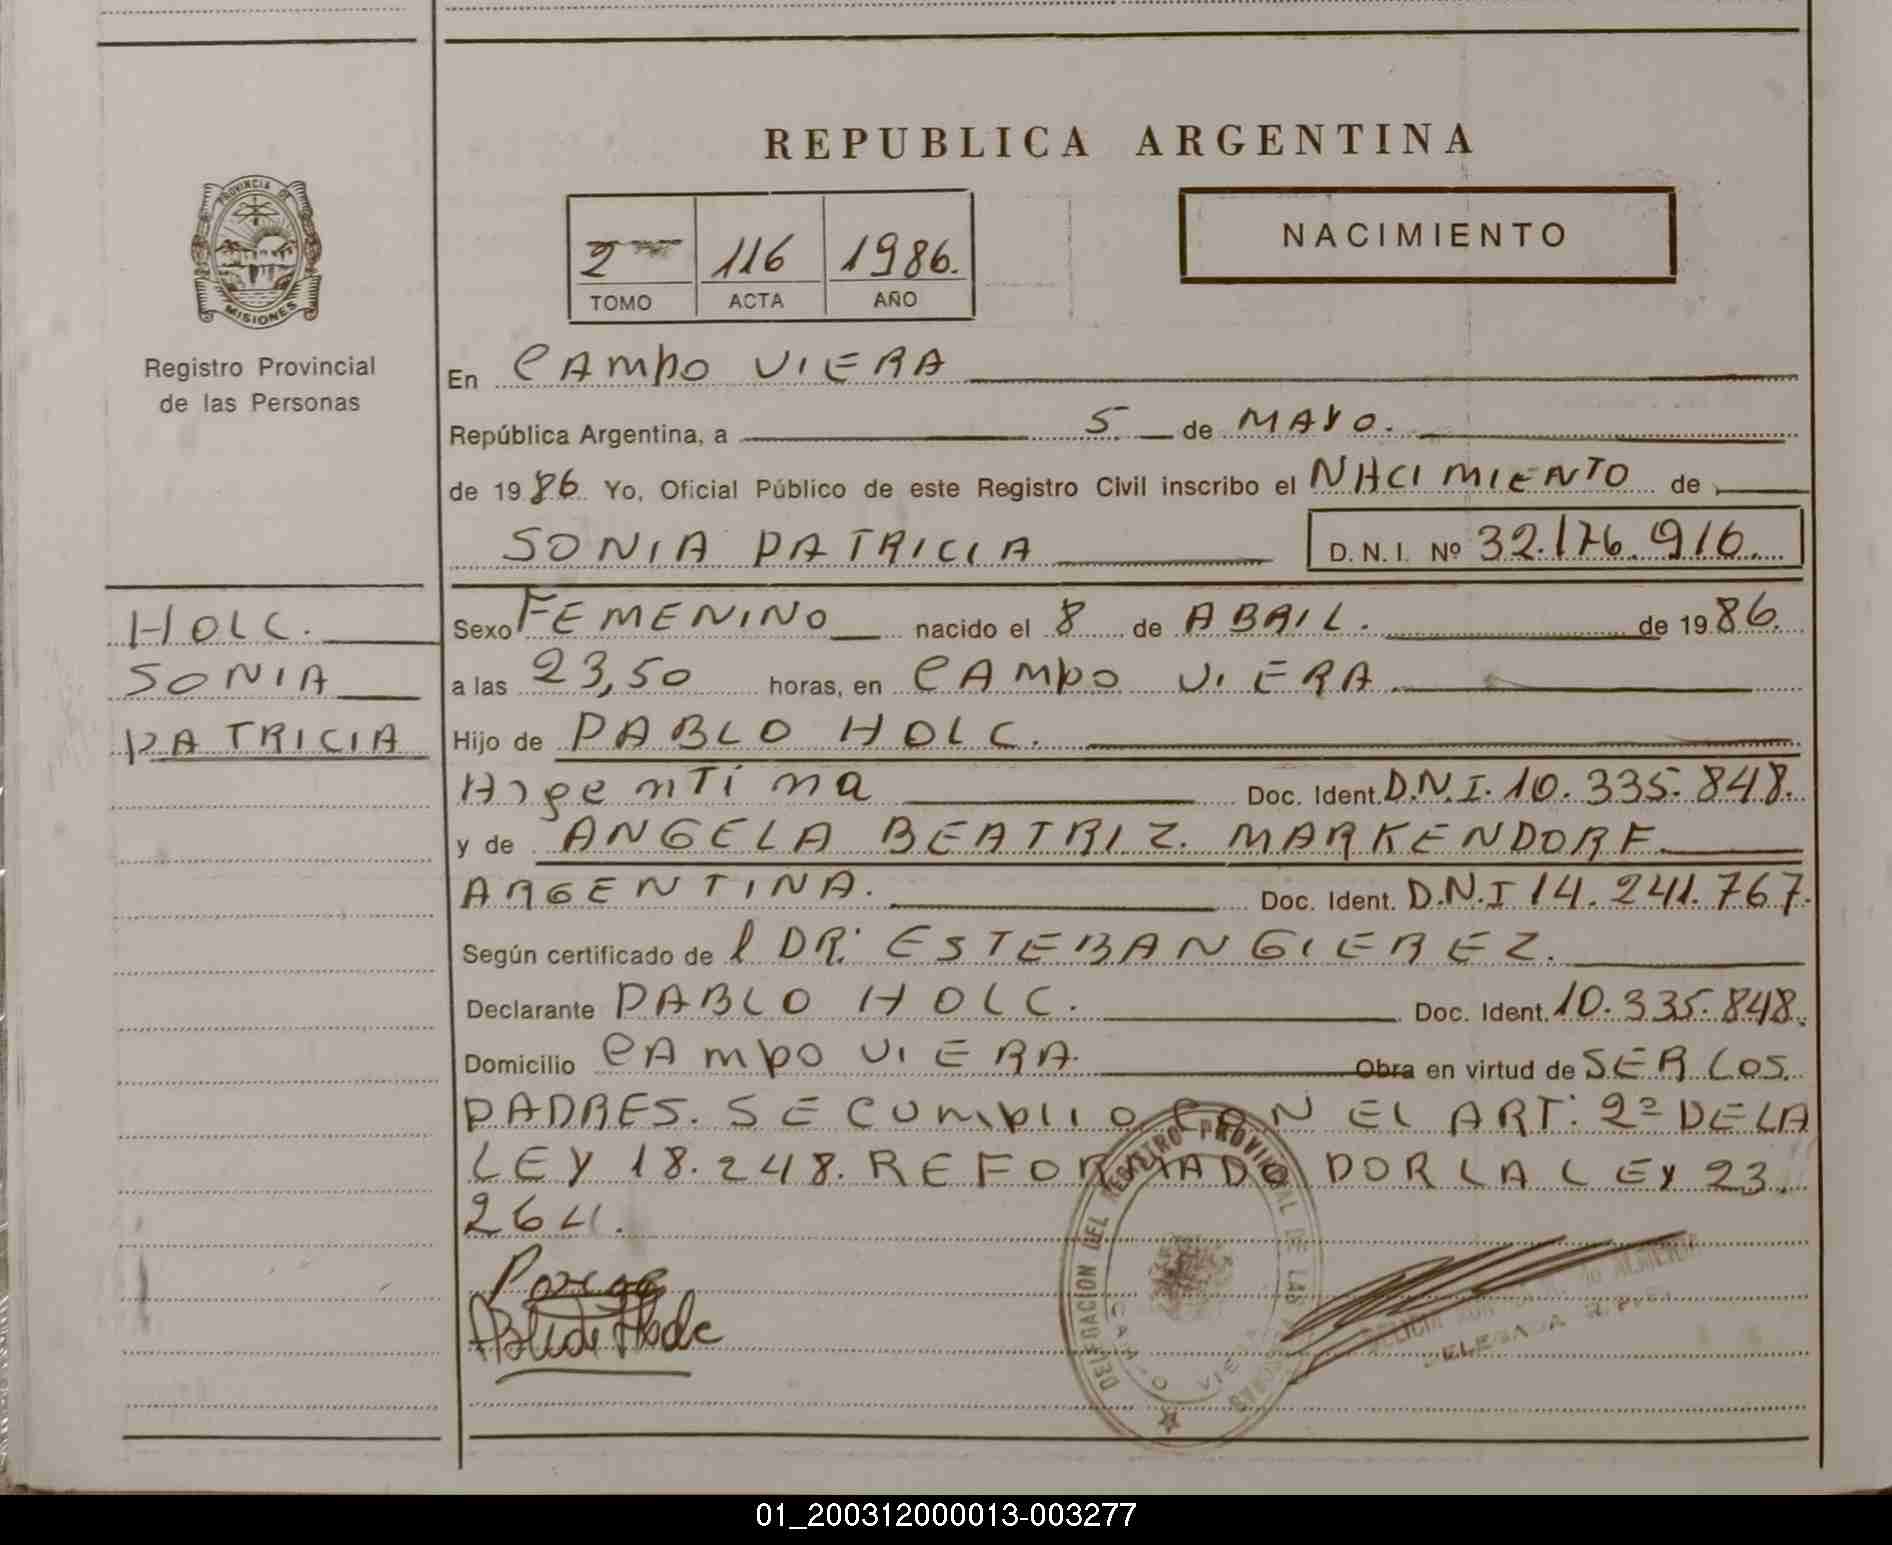 REPUBLICA ARGENTINA
PROVINCIA DE
MISIONES
Registro Provincial
de las Personas
2
116
1986.
TOMO
ACTA
AÑO
NACIMIENTO
En CAMPO VIERA
República Argentina, a 5 de MAYO.
de 1986 Yo, Oficial Público de este Registro Civil inscribo el NACIMIENTO de
SONIA PATRICIA D.N.I. Nº 32.176.916.
HOLC.
SONIA
PATRICIA
Sexo FEMENINO nacido el 8 de ABRIL. de 1986.
a las 23,50 horas, en CAMPO VIERA
Hijo de PABLO HOLC.
Argentina Doc. Ident. D.N.I. 10.335.848.
y de ANGELA BEATRIZ. MARKENDORF
ARGENTINA. Doc. Ident. D.N.I 14.241.767.
Según certificado de l DR: ESTEBAN GIEREZ.
Declarante PABLO HOLC. Doc. Ident. 10.335.848.
Domicilio CAMPO VIERA. Obra en virtud de SER LOS
PADRES. SE CUMPLIO CON EL ART: 2º DE LA
LEY 18.248. REFORMADO POR LA LEY 23.
264.
DELEGACION DEL REGISTRO PROVINCIAL DE LAS PERSONAS
CAMPO VIERA
DELEGADA
01_200312000013-003277